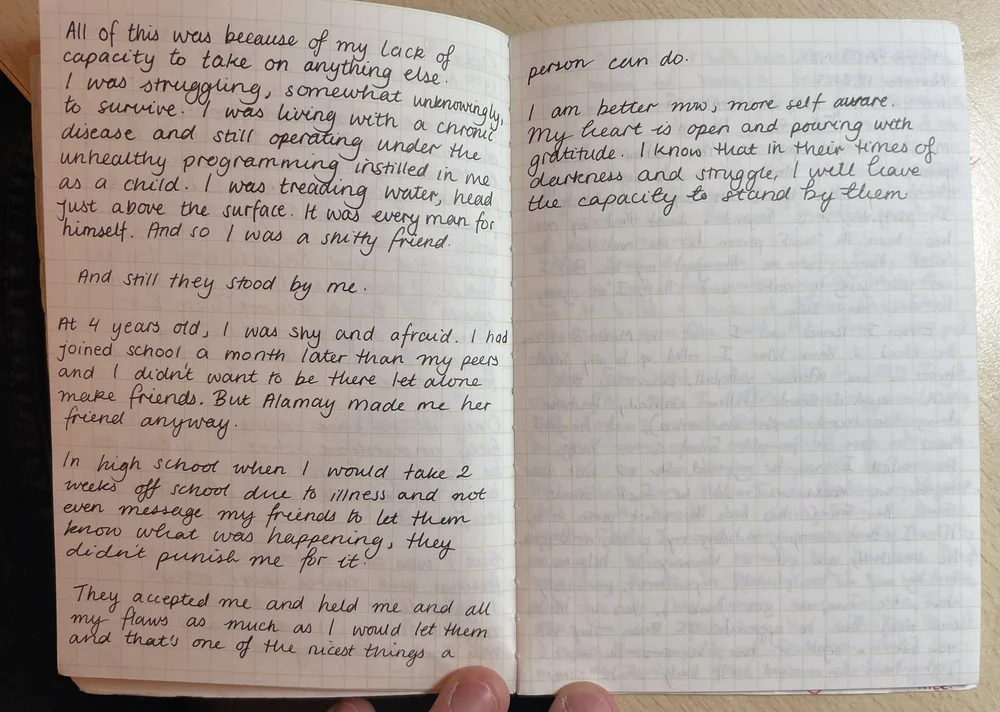 All of this was because of my lack of
capacity to take on anything else.
I was struggling, somewhat unknowingly,
to survive. I was living with a chronic
disease and still operating under the
unhealthy programming instilled in me
as a child. I was treading water, head
just above the surface. It was every man for
himself. And so I was a shitty friend.
And still they stood by me.
At 4 years old, I was shy and afraid. I had
joined school a month later than my peers
and I didn't want to be there let alone
make friends. But Alamay made me her
friend anyway.
In high school when I would take 2
weeks off school due to illness and not
even message my friends to let them
know what was happening, they
didn't punish me for it.
They accepted me and held me and all
my flaws as much as I would let them
and that's one of the nicest things a
person can do.
I am better now, more self aware.
My heart is open and pouring with
gratitude. I know that in their times of
darkness and struggle, I will have
the capacity to stand by them